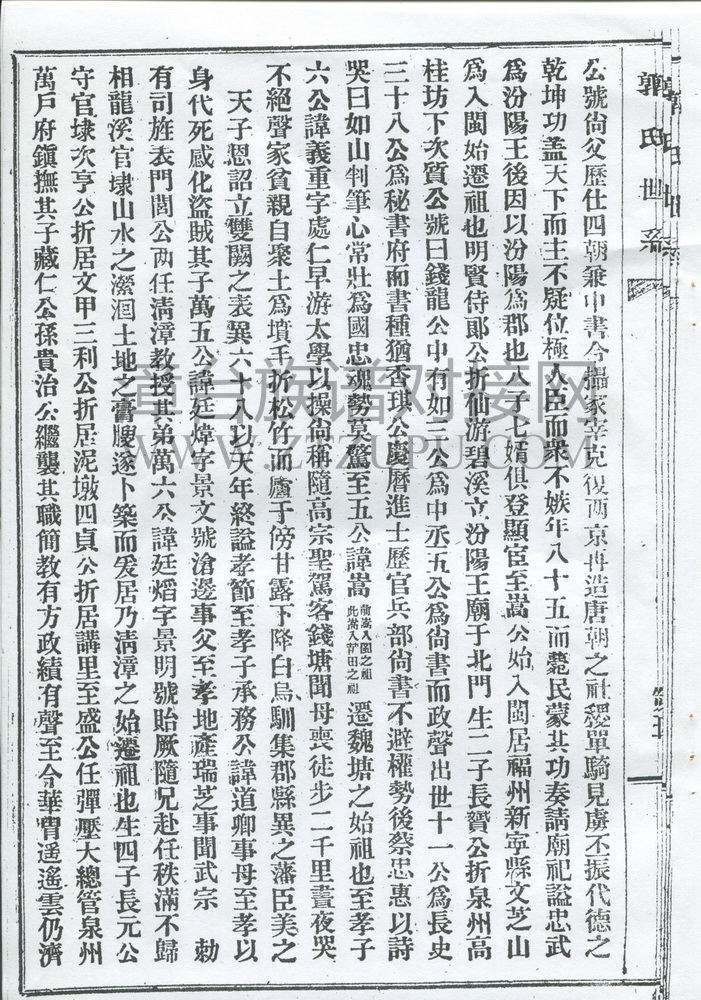 郭氏世系
公號尙父歷仕四朝兼中書令攝冢宰克復兩京再造唐朝之社稷單騎見虜丕振代德之
乾坤功盖天下而主不疑位極人臣而衆不嫉年八十五而薨民蒙其功奏請廟祀諡忠武
爲汾陽王後因以汾陽爲郡也八子七婿俱登顯宦至嵩公始入閩居福州新寧縣文芝山
爲入閩始遷祖也明賢侍郎公折仙游碧溪立汾陽王廟于北門生二子長賀公折泉州高
桂坊下次質公號曰錢龍公中有如三公爲中丞五公爲尙書而政聲出世十一公爲長史
三十八公爲秘書府兩書種猶香琪公慶曆進士歷官兵部尙書不避權勢後蔡忠惠以詩
哭曰如山判筆心常壯爲國忠魂勢莫驚至五公諱嵩前嵩入閩之祖此嵩入莆田之祖遷魏塘之始祖也至孝子
六公諱義重字處仁早游太學以操尙稱隨高宗聖駕客錢塘聞母喪徒步二千里晝夜哭
不絕聲家貧親自聚土爲墳手折松竹而廬于傍甘露下降白烏馴集郡縣異之藩臣美之
天子恩詔立雙闕之表異六十八以天年終諡孝節至孝子承務公諱道卿事母至孝以
身代死感化盜賊其子萬五公諱廷煒字景文號滄邊事父至孝地產瑞芝事聞武宗 勅
有司旌表門閭公兩任淸漳教授其弟萬六公諱廷熖字景明號貽厥隨兄赴任秩滿不歸
相龍溪官埭山水之瀠洄土地之膏腴遂卜築而爰居乃淸漳之始遷祖也生四子長元公
守官埭次亨公折居文甲三利公折居泥墩四貞公折居講里至盛公任彈壓大總管泉州
萬戶府鎭撫其子藏仁公孫貴治公繼襲其職簡教有方政績有聲至今華胄遥遙雲仍濟
章台族谱对接网
WWW.ZTZUPU.COM